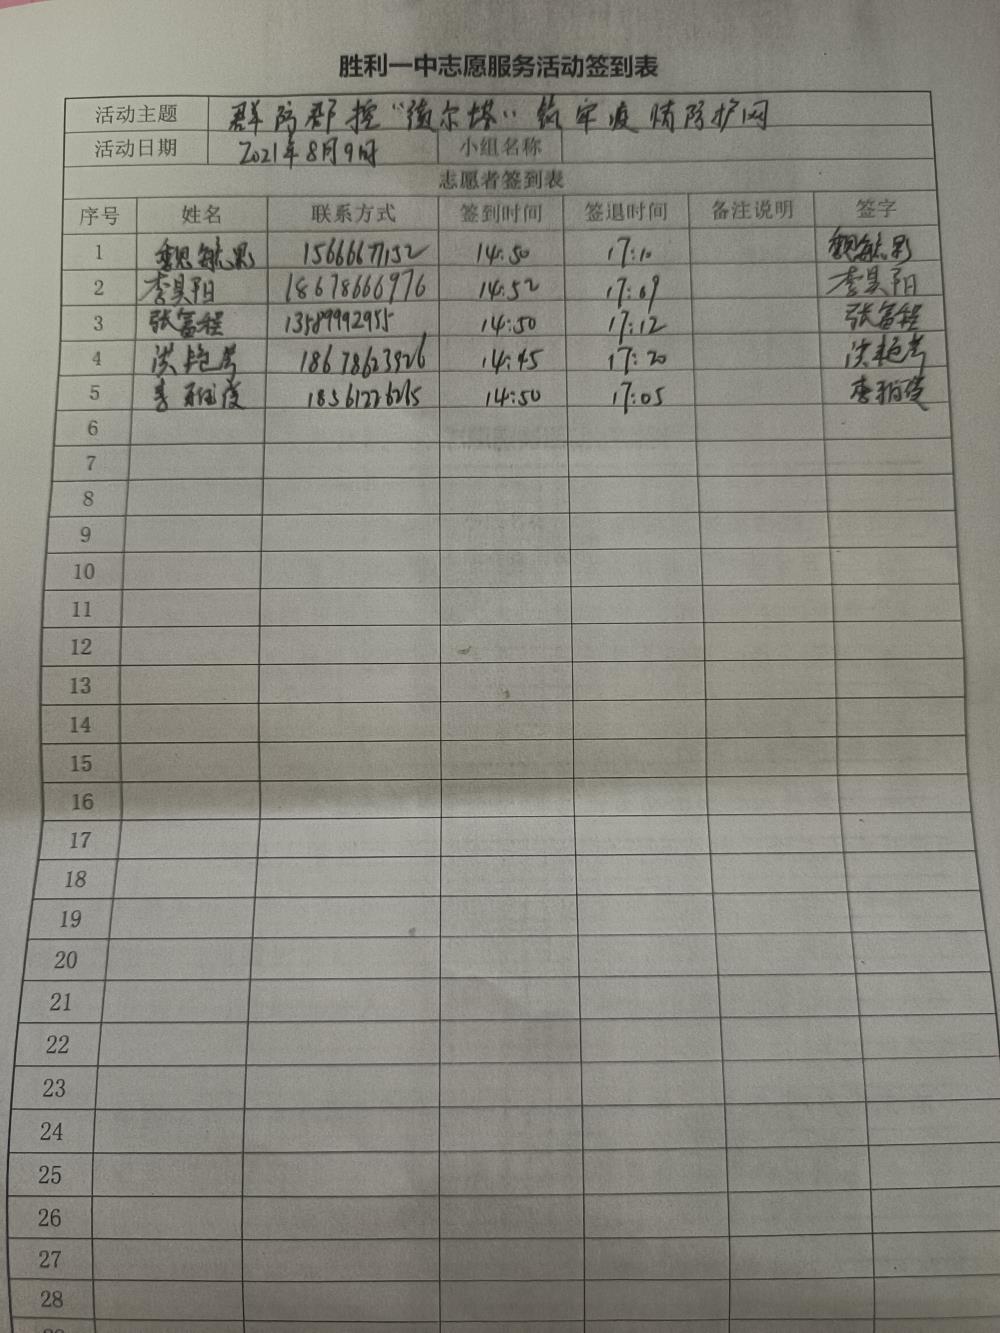 胜利一中志愿服务活动签到表
活动主题 群防群控“德尔塔”筑牢疫情防护网
活动日期 2021年8月9日 小组名称
志愿者签到表
序号 姓名 联系方式 签到时间 签退时间 备注说明 签字
1 魏毓影 15666677152 14:50 17:10 魏毓影
2 李昊阳 18678666976 14:52 17:09 李昊阳
3 张富程 13589992955 14:50 17:12 张富程
4 18678623926 14:45 17:20
5 李 18561226265 14:50 17:05 李
6
7
8
9
10
11
12
13
14
15
16
17
18
19
20
21
22
23
24
25
26
27
28